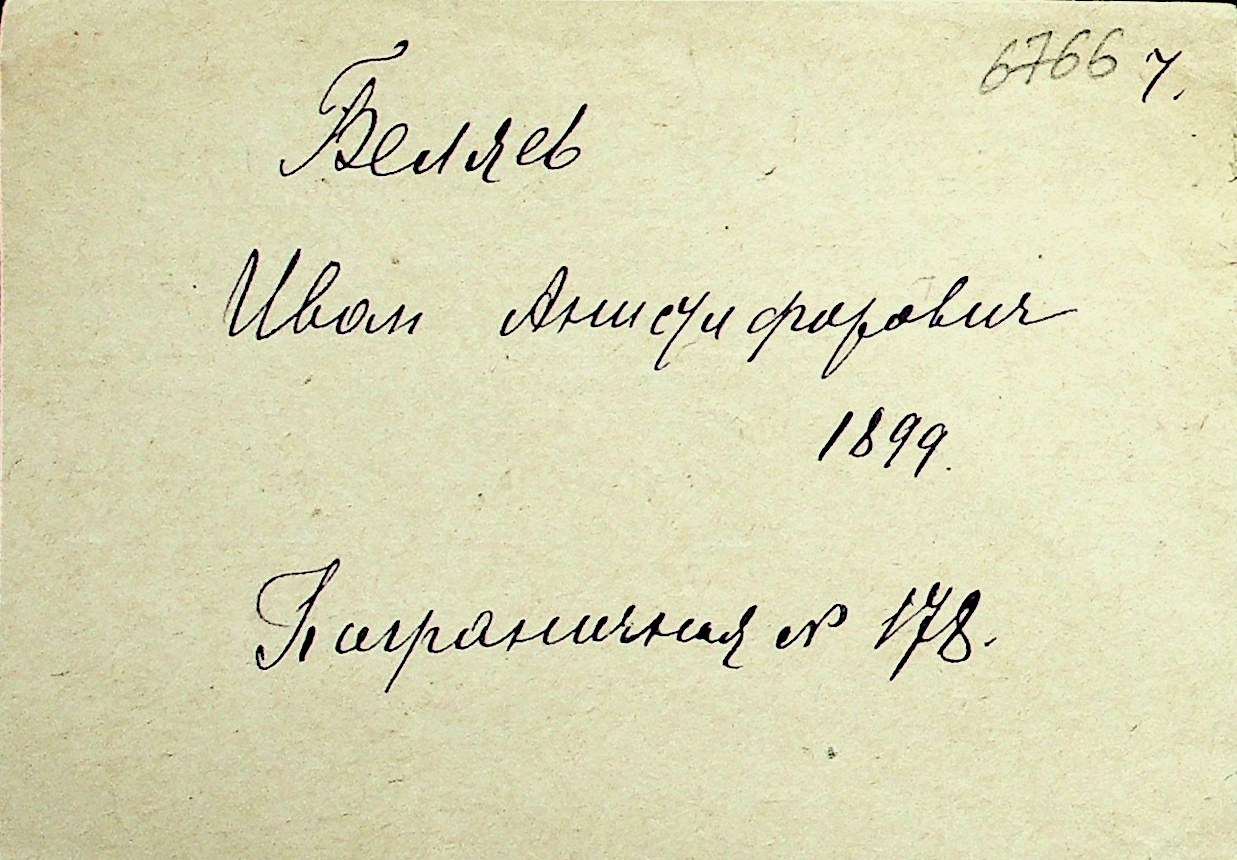 6766 у.
Беляев
Иван Анисифорович
1899.
Пограничная № 178.